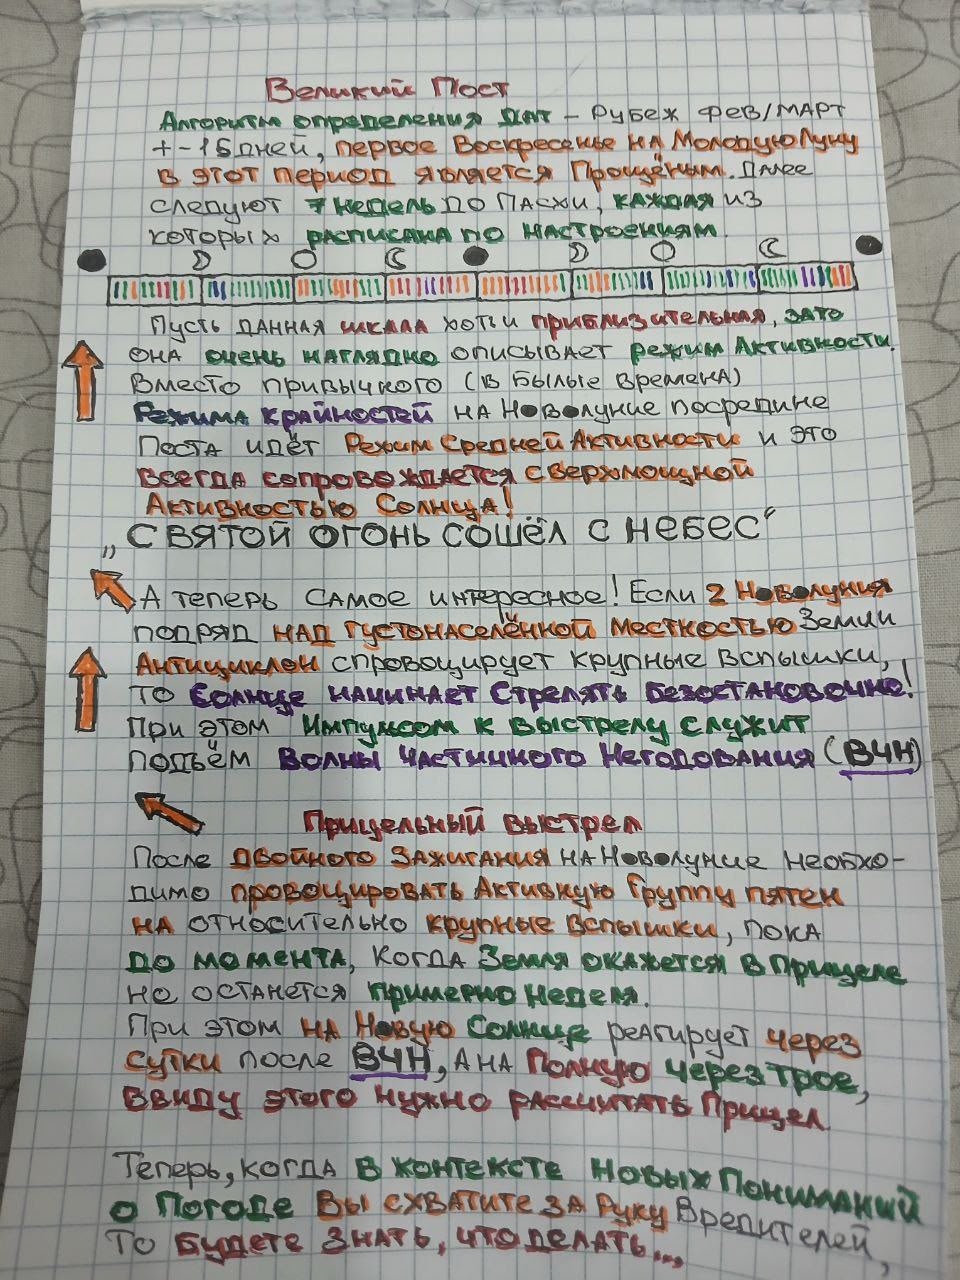 Великий Пост
Алгоритм определения дат – Рубеж фев/март
+-15 дней, первое Воскресенье на Молодую Луну
в этот период является Прощёным. Далее
следуют 7 недель до Пасхи, каждая из
которых расписана по настроениям.
Пусть данная шкала хоть и приблизительная, зато
она очень наглядно описывает режим Активности.
Вместо привычного (в былые времена)
Режима Крайностей на Новолуние посредине
Поста идёт Режим Средней Активности и это
Всегда сопровождается сверхмощной
Активностью Солнца!
„Святой огонь сошёл с небес"
А теперь самое интересное! Если 2 Новолуния
подряд над густонаселённой месткостью Земли
Антициклон спровоцирует крупные вспышки,
то Солнце начинает Стрелять Безостановочно!
При этом Импульсом к выстрелу служит
подъём Волны Частичного Негодования (ВЧН)
Прицельный выстрел
После двойного зажигания на Новолуние необхо-
димо провоцировать Активную Группу пятен
на относительно крупные вспышки, пока
до момента, когда Земля окажется в Прицеле
не останется примерно неделя.
При этом на Новую Солнце реагирует через
сутки после ВЧН, а на Полную через трое,
Ввиду этого нужно рассчитать Прицел.
Теперь, когда в контексте новых Пониманий
о Погоде Вы схватите за Руку Вредителей,
То Будете знать, что делать...,